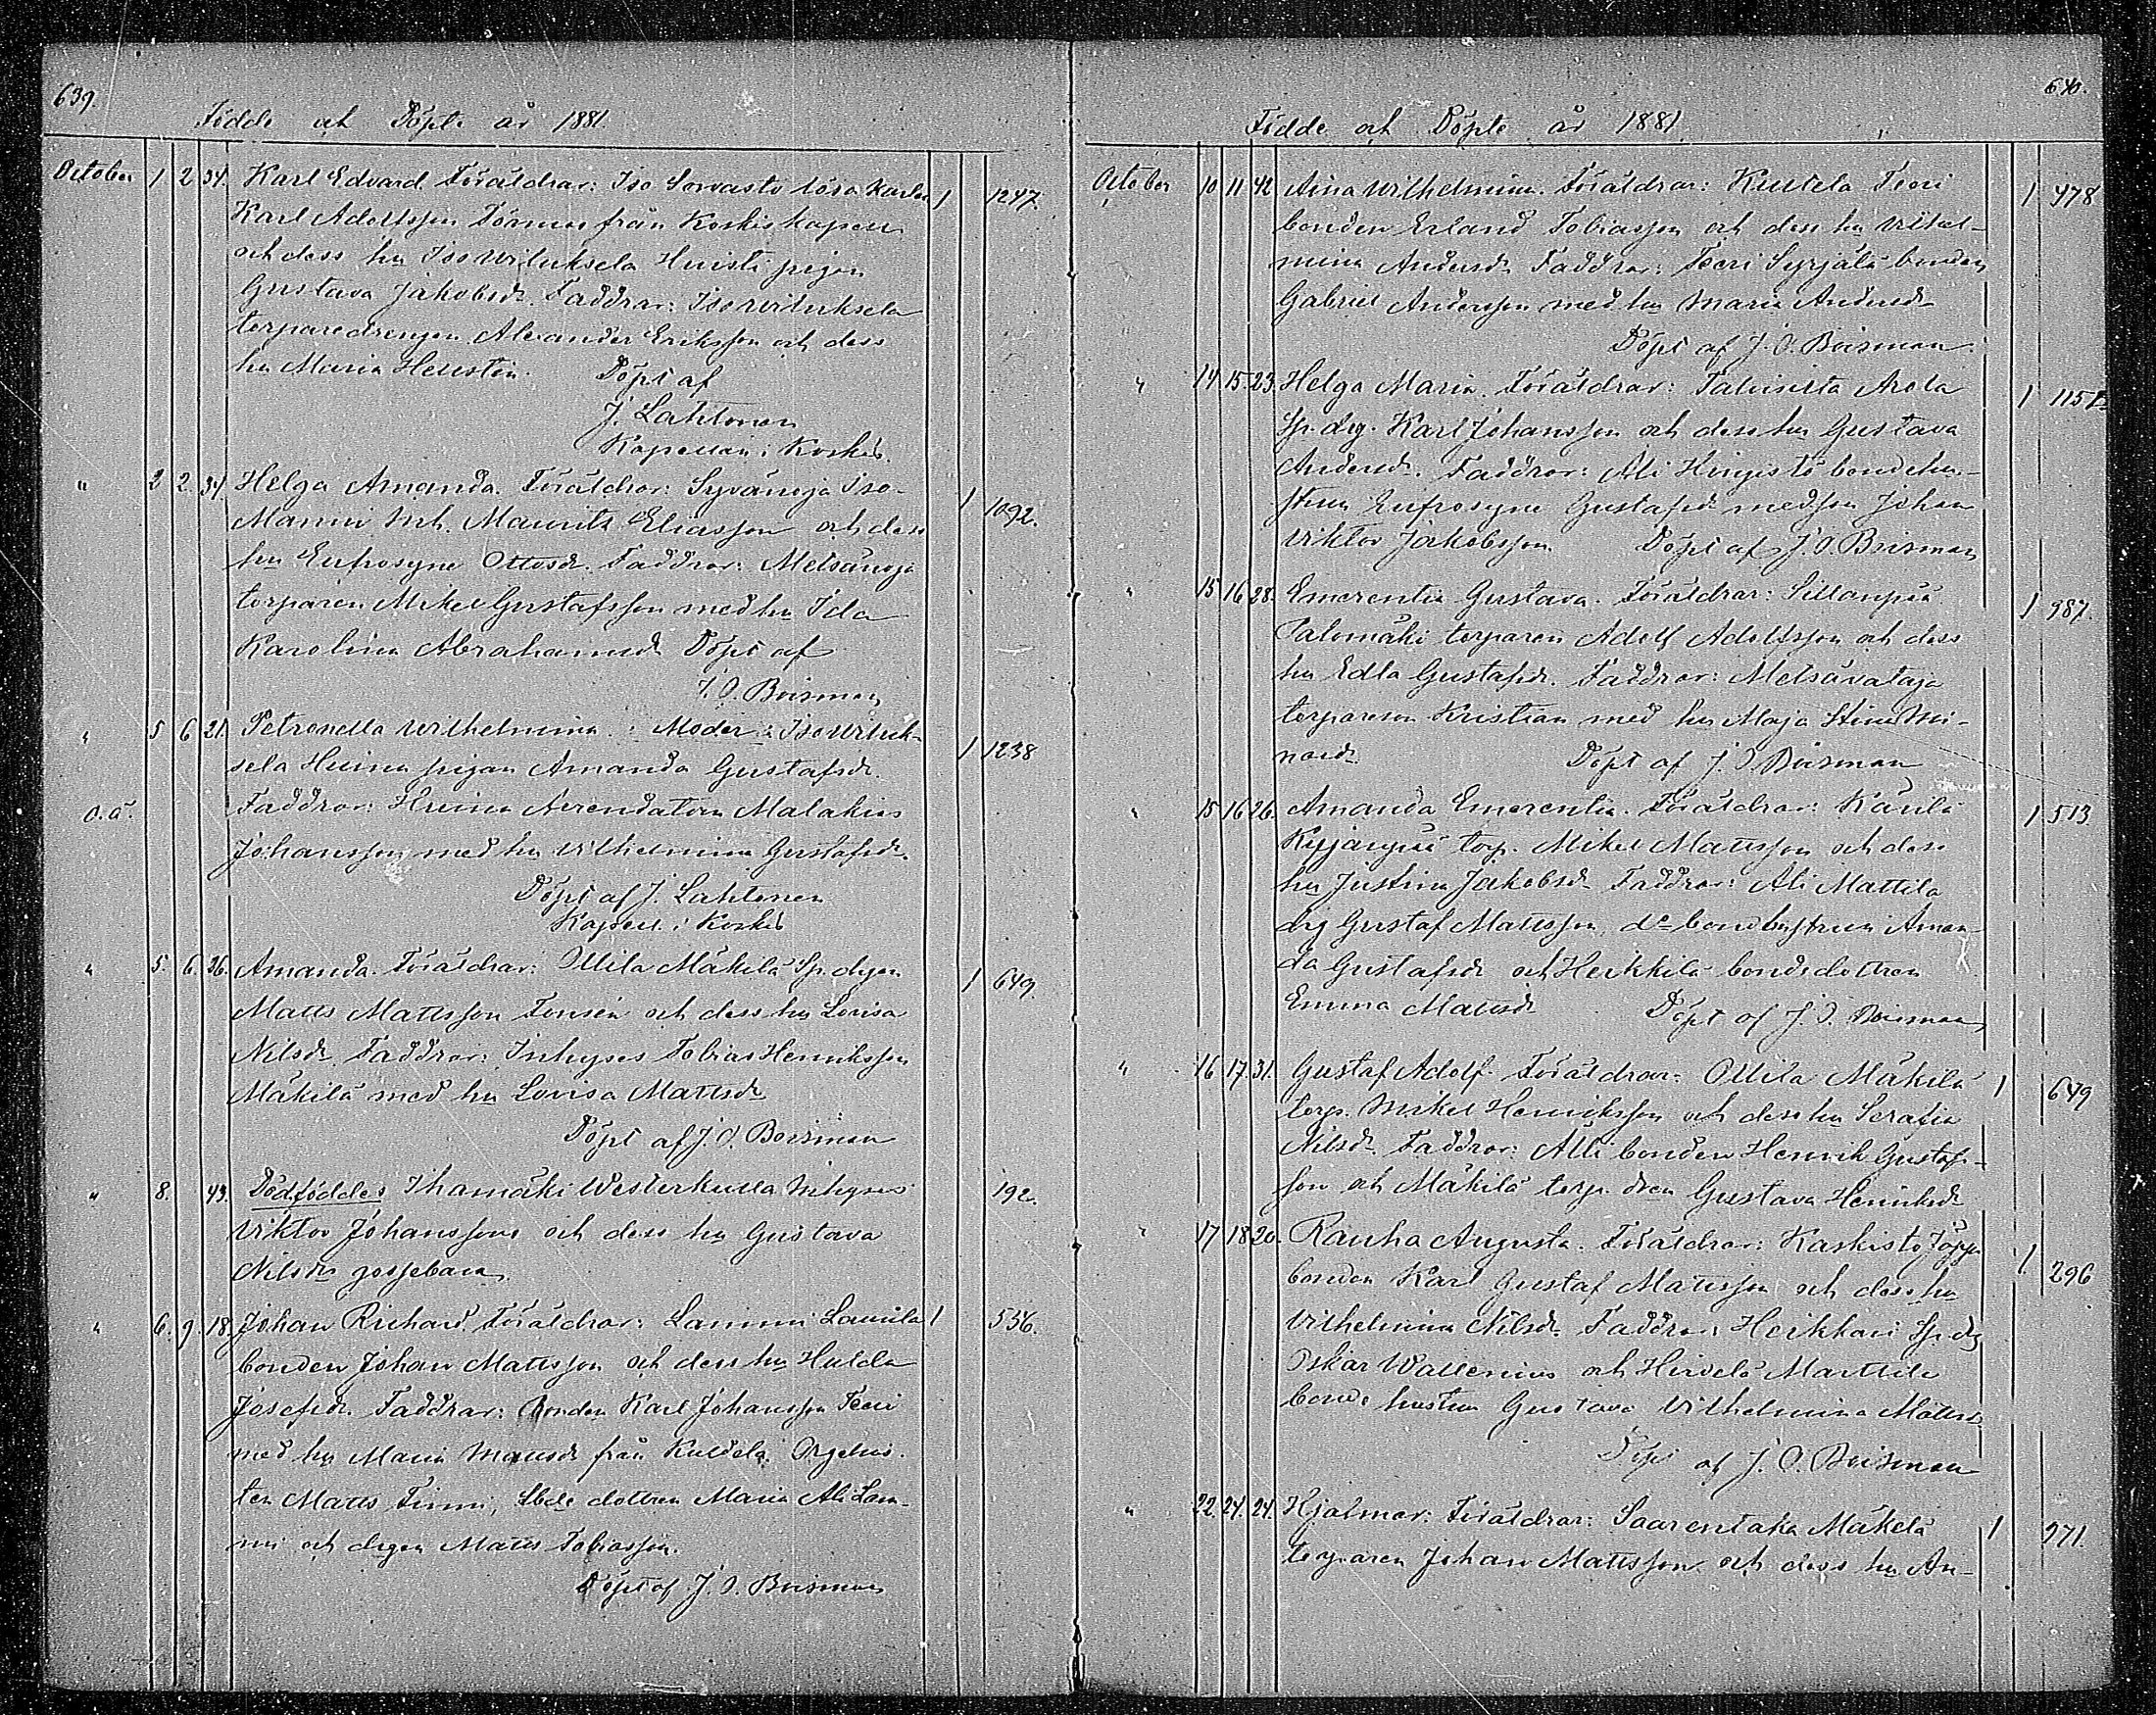 639.
Födde och Döpte år 1881.
October 1 2 34. Karl Edvard. Föräldrar: Iso Sorvasto lösa karlen 1 1247.
Karl Adolfsson Törnroos från Koskis kapell
och dess hu Iso Wiluksela Huisti pigan
Gustava Jakobsdr. Faddrar: Iso Wiluksela
torparedrengen Alexander Eriksson och dess
hu Maria Heustin. Döpt af
J. Lahtonen
Kapellan i Koskis.
" 2 2. 34 Helga Amanda. Föräldrar: Syvänoja Iso- 1 1092.
Manni Inh. Maurits Eliasson och dess
hu Eufrosyne Ottosdr. Faddrar: Metsänoja
torparen Mikel Gustafsson med hu Ida
Karolina Abrahamsdr. Döpt af
J. O. Boisman
" 5 6 21. Petronella Wilhelmina. : Moder: Iso Wiluk- 1 1238
sela Huima pigan Amanda Gustafsdr.
o.ä. Faddrar: Huima Arrendatorn Malakias
Johansson med hu Vilhelmina Gustafsdr.
Döpt af J. Lahtonen
Kapell. i Koskis
" 5. 6. 36. Amanda. Föräldrar: Ollila Mäkilä Sp. drgen 1 649.
Matts Mattsson Tensén och dess hu Lovisa
Nilsdr. Faddrar: Inhyses Tobias Henriksson
Mäkilä med hu Lovisa Mattsdr
Döpt af J. O. Boisman
" 8. 43. Dödföddes Ihamäki Westerkulla Inhyses 192.
Viktor Johanssons och dess hu Gustava
Nilsdrs gossebarn.
" 6. 9. 18. Johan Richard. Föräldrar: Lammi Laurila 1 536.
bonden Johan Mattsson och dess hu Hulda
Josefsdr. Faddrar: bonden Karl Johansson Teeri
med hu Maria Mattsdr från Kuldela. Orgelnis-
ten Matts Finni, Sbde dottren Maria Ali Lam-
mi och drgen Matts Tobiasson.
Döpt af J. O. Boisman
640.
Födde och Döpte år 1881.
October 10 11 42 Aina Wilhelmina. Föräldrar: Kuldela Teeri 1 478
bonden Erland Tobiasson och dess hu Vilhel-
mina Andersdr. Faddrar: Teeri Syrjälä bonden
Gabriel Andersson med hu Maria Andersdr
Döpt af J. O. Boisman.
" 14. 15. 23. Helga Maria. Föräldrar: Talvisilta Arola 1 1151
Sp. drg. Karl Johansson och dess hu Gustava
Andersdr. Faddrar: Ali Hingisto bondehu-
strun Eufrosyne Gustafsdr med son Johan
Viktor Jakobsson. Döpt af J. O. Boisman
" 15 16 28. Emerentia Gustava. Föräldrar: Sillanpää 1 987.
Palomäki torparen Adolf Adolfsson och dess
hu Edla Gustafsdr. Faddrar: Metsävataja
torpareson Kristian med hu Maja Stina Wi-
nordr. Döpt af J. O. Boisman
" 15 16 26. Amanda Emerentia. Föräldrar: Käulä 1 513
torp. Mikel Mattsson och dess
hu Justina Jakobsdr. Faddrar: Ali Mattila
drg Gustaf Mattsson, do bondehustrun Aman-
da Gustafsdr och Heikkilä bondedottren
Emma Mattsdr Döpt af J. O. Boisman
" 16 17. 31. Gustaf Adolf. Föräldrar: Ollila Mäkilä 1 649
torp. Mikel Henriksson och dess hu Serafia
Nilsdr. Faddrar: Alli bonden Henrik Gustaf-
son och Mäkilä torp. dren Gustava Henriksdr
" 17 18 20. Rauha Augusta. Föräldrar: Kaskisto Jöyni 1 296
bonden Karl Gustaf Mattsson och dess hu
Vilhelmina Nilsdr. Faddrar: Heikkari Sp. drg
Oskar Wallenius och Hirvelä Marttila
bonde hustrun Gustava Vilhelmina Mattsdr
Döpt af J. O. Boisman
" 22. 24. 24. Hjalmar. Föräldrar: Saarentaka Mäkelä 1 971.
torparen Johan Mattsson och dess hu An-